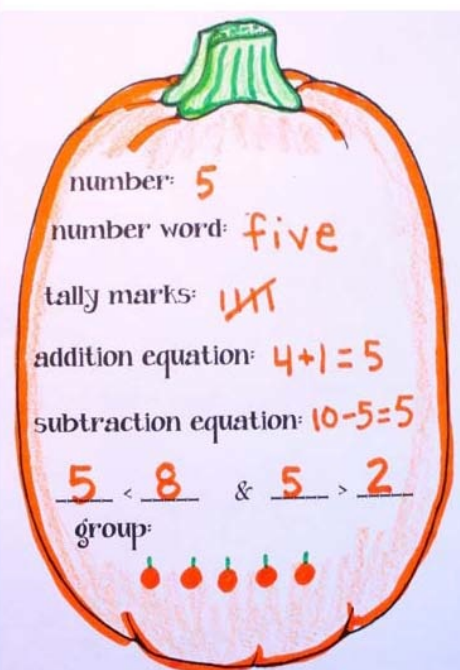 number: 5
number word: five
tally marks: 𝍸
addition equation: 4+1=5
subtraction equation: 10-5=5
5 < 8 & 5 > 2
group: